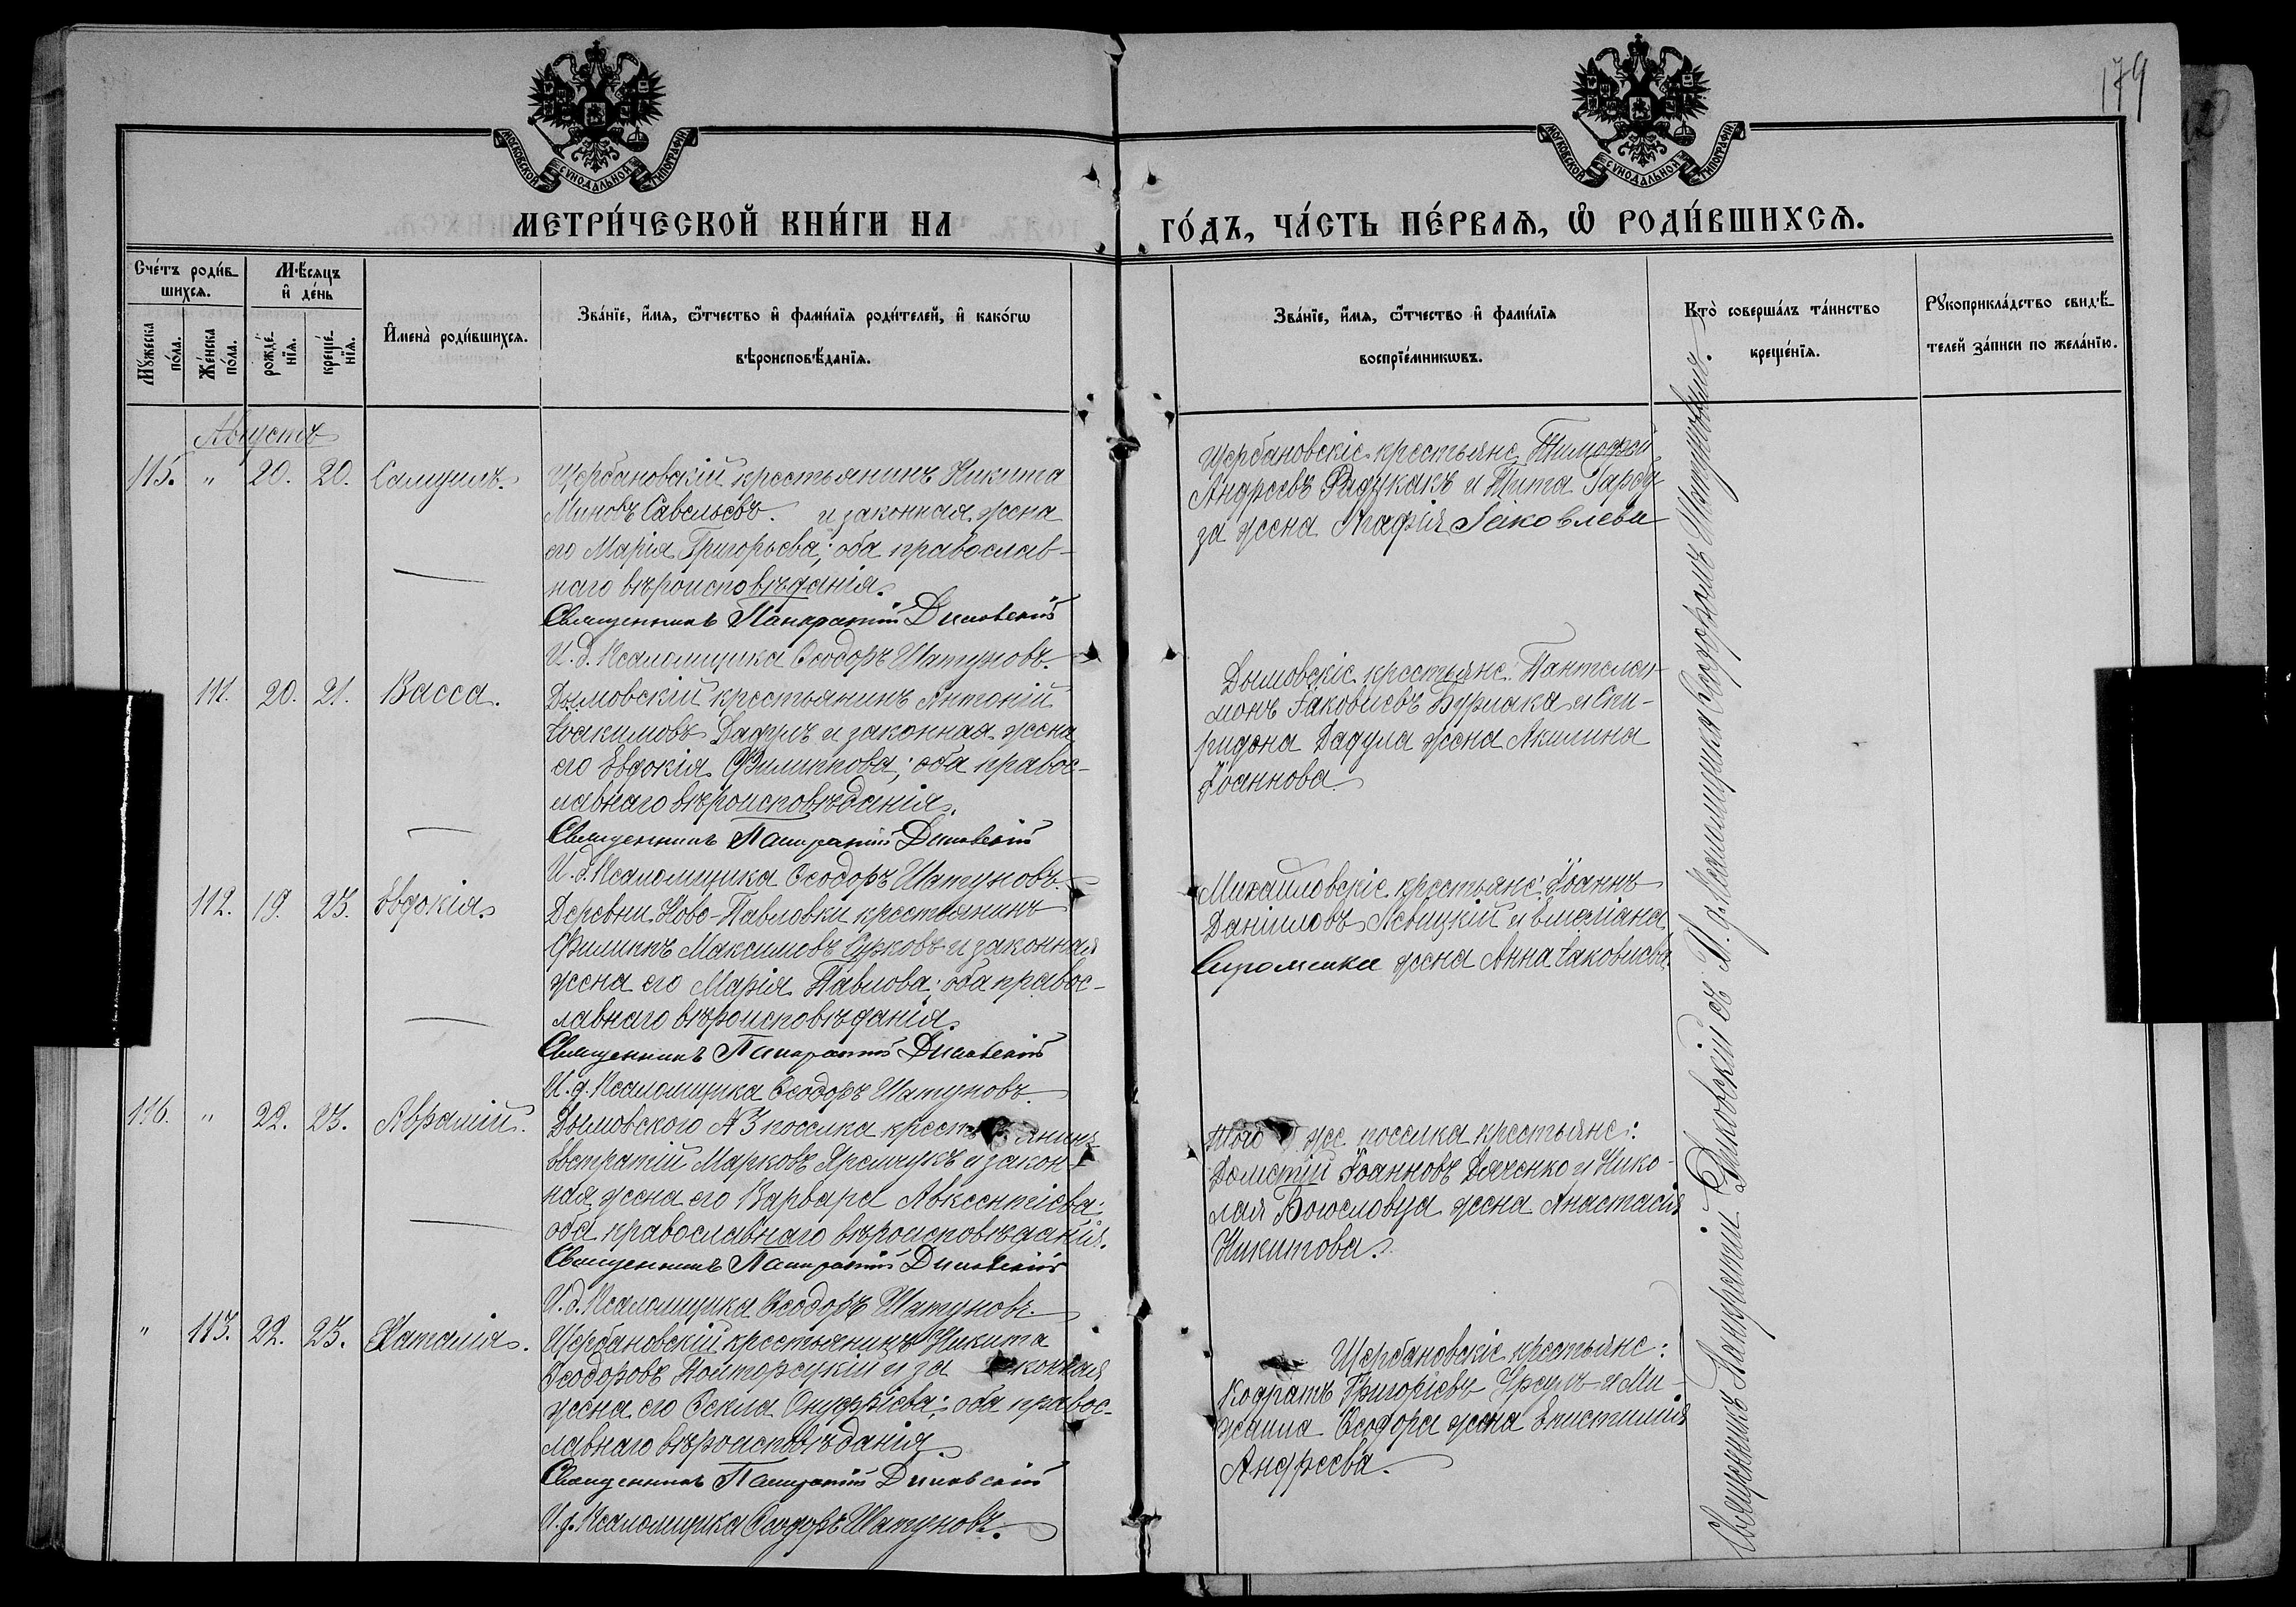 179
МОСКОВСКОЙ СѴНОДАЛЬНОЙ ТИПОГРАФІИ
МОСКОВСКОЙ СѴНОДАЛЬНОЙ ТИПОГРАФІИ
МЕТРИ́ЧЕСКОЙ КНИ́ГИ НА
ГО́ДЪ, ЧА́СТЬ ПЕ́РВАѦ, Ѡ҆ РОДИ́ВШИХСѦ.
Сче́тъ роди́в-
шихсѧ.
Мѣ́сѧцъ
и҆ де́нь
Мꙋ́жеска
по́ла.
Же́нска
по́ла.
рожде́-
нїѧ.
креще́-
нїѧ.
И҆мена̀ роди́вшихсѧ.
Зва́нїе, и҆́мѧ, ѻ҆́тчество и҆ фами́лїѧ роди́телей, и҆ како́гѡ
вѣроисповѣ́данїѧ.
Зва́нїе, и҆́мѧ, ѻ҆́тчество и҆ фами́лїѧ
воспрїе́мникѡвъ.
Кто̀ соверша́лъ та́инство
креще́нїѧ.
Рꙋкоприкла́дство свидѣ́-
телей за́писи по жела́нїю.
Августъ
115. " 20. 20. Самуилъ.
Щербановскій крестьянинъ Никита
Миновъ Савельевъ. и законная жена
его Марія Григорьева; оба православ-
наго вѣроисповѣданія.
Священникъ Панкратій Диковскій
И. д. Псаломщика Ѳеодоръ Шатуновъ.
Щербановскіе крестьяне Тимофей
Андреевъ Радуканъ и Тита
за жена Агафія Іаковлева
" 111. 20. 21. Васса.
Дымовскій крестьянинъ Антоній
Іоакимовъ Дадулъ и законная жена
его Евдокія Филиппова; оба правос-
лавнаго вѣроисповѣданія.
Священникъ Панкратій Диковскій
И. д. Псаломщика Ѳеодоръ Шатуновъ.
Дымовскіе крестьяне: Пантелеи-
монъ Іаковлевъ Бурлака и Спи-
ридона Дадула жена Акилина
Іоаннова.
112. 19. 23. Евдокія.
Деревни Ново-Павловки крестьянинъ
Филиппъ Максимовъ и законная
жена его Марія Павлова; оба правос-
лавнаго вѣроисповѣданія.
Священникъ Панкратій Диковскій
И. д. Псаломщика Ѳеодоръ Шатуновъ.
Михайловскіе крестьяне: Іоаннъ
Даниловъ Левицкій и Емеліана
жена Анна Іаковлева.
116. " 22. 23. Аврамій.
Дымовского № 3 поселка крестьянинъ
Евстратій Марковъ Яремчукъ и закон-
ная жена его Варвара Авксентіева;
оба православнаго вѣроисповѣданія.
Священникъ Панкратій Диковскій
И. д. Псаломщика Ѳеодоръ Шатуновъ.
Того же поселка крестьяне:
Дометій Іоанновъ Дяченко и Нико-
лая Богословца жена Анастасія
Никитова.
" 113. 22. 23. Наталія.
Щербановскій крестьянинъ Никита
Ѳеодоровъ и законная
жена его Ѳекла Онуфріева; оба правос-
лавнаго вѣроисповѣданія.
Священникъ Панкратій Диковскій
И. д. Псаломщика Ѳеодоръ Шатуновъ.
Щербановскіе крестьяне:
Кодратъ Григоріевъ Урсулъ и Ми-
хаила Ѳеодора жена Епистимія
Андреева.
Священникъ Панкратій Диковскій съ И. д. Псаломщика Ѳеодоромъ Шатуновымъ.